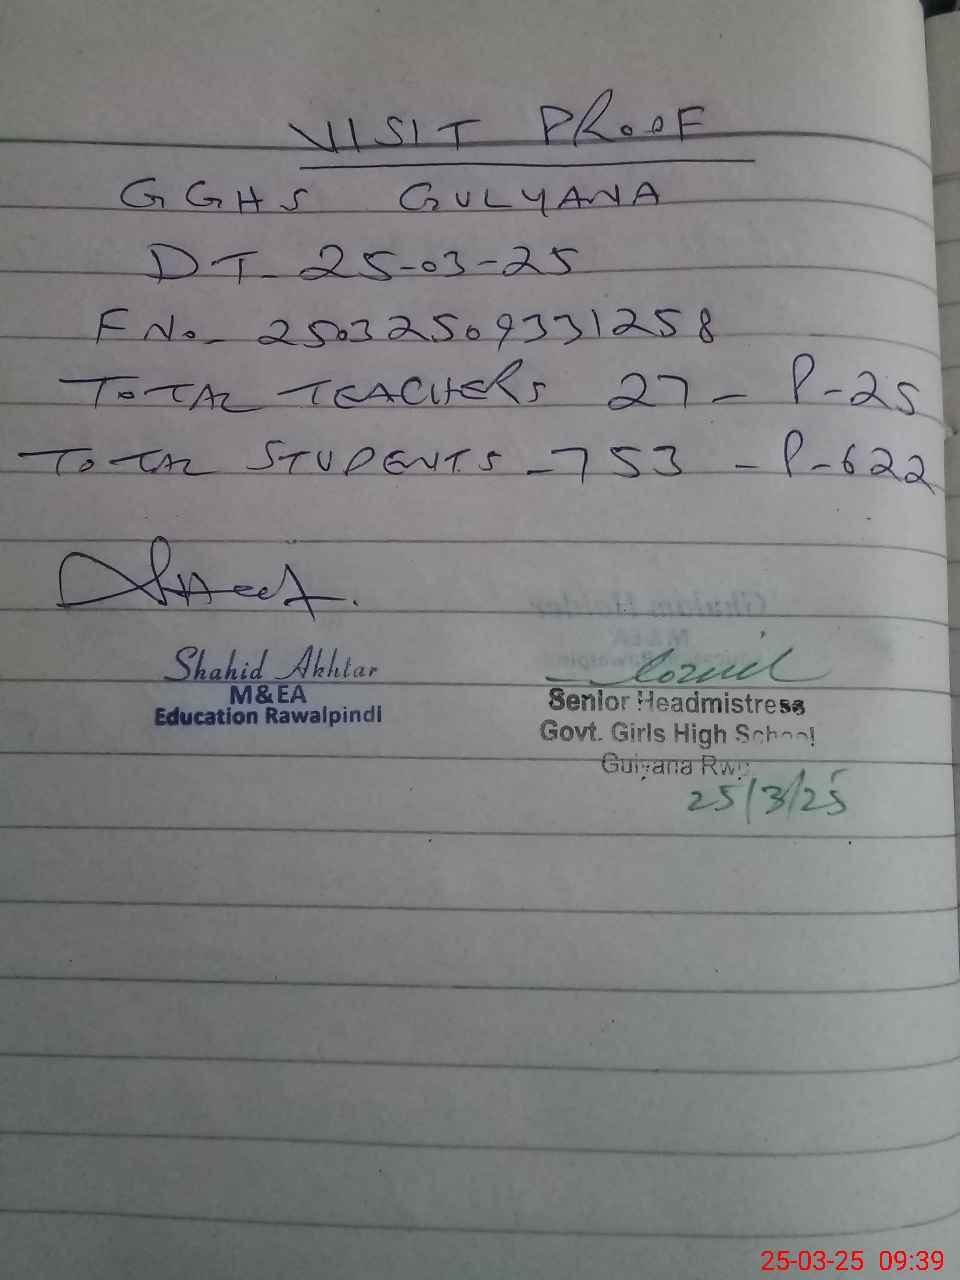 VISIT PROOF
GGHS GULYANA
DT- 25-03-25
F No- 25032509331258
TOTAL TEACHERS 27 - P-25
TOTAL STUDENTS - 753 - P-622
Shahid Akhtar
M&EA
Education Rawalpindi
Senior Headmistress
Govt. Girls High School
Gulyana Rwp
25/3/25
25-03-25 09:39